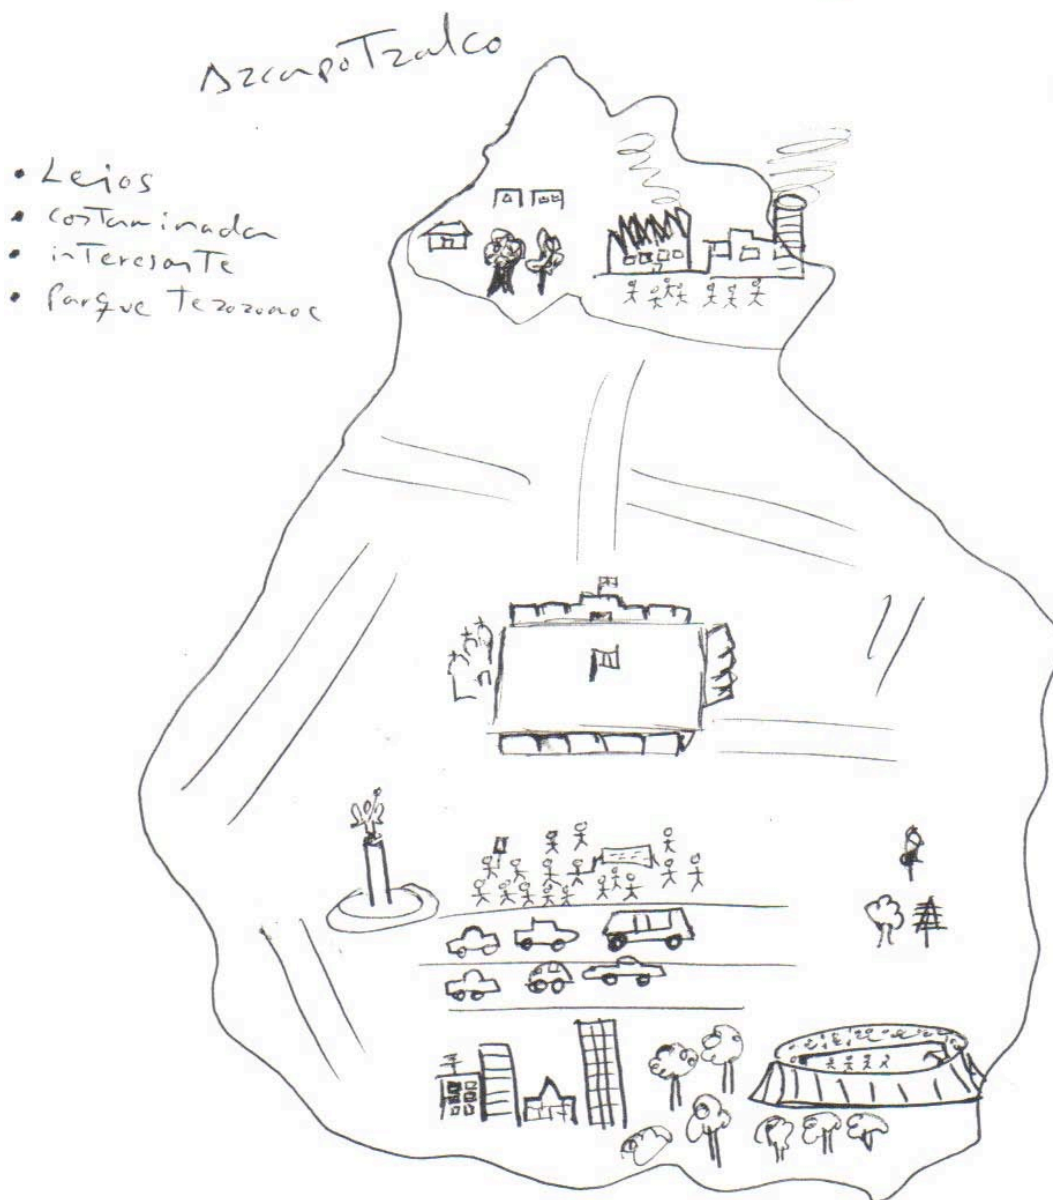 Azcapotzalco
• Lejos
• contaminada
• interesante
• Parque Tezozomoc